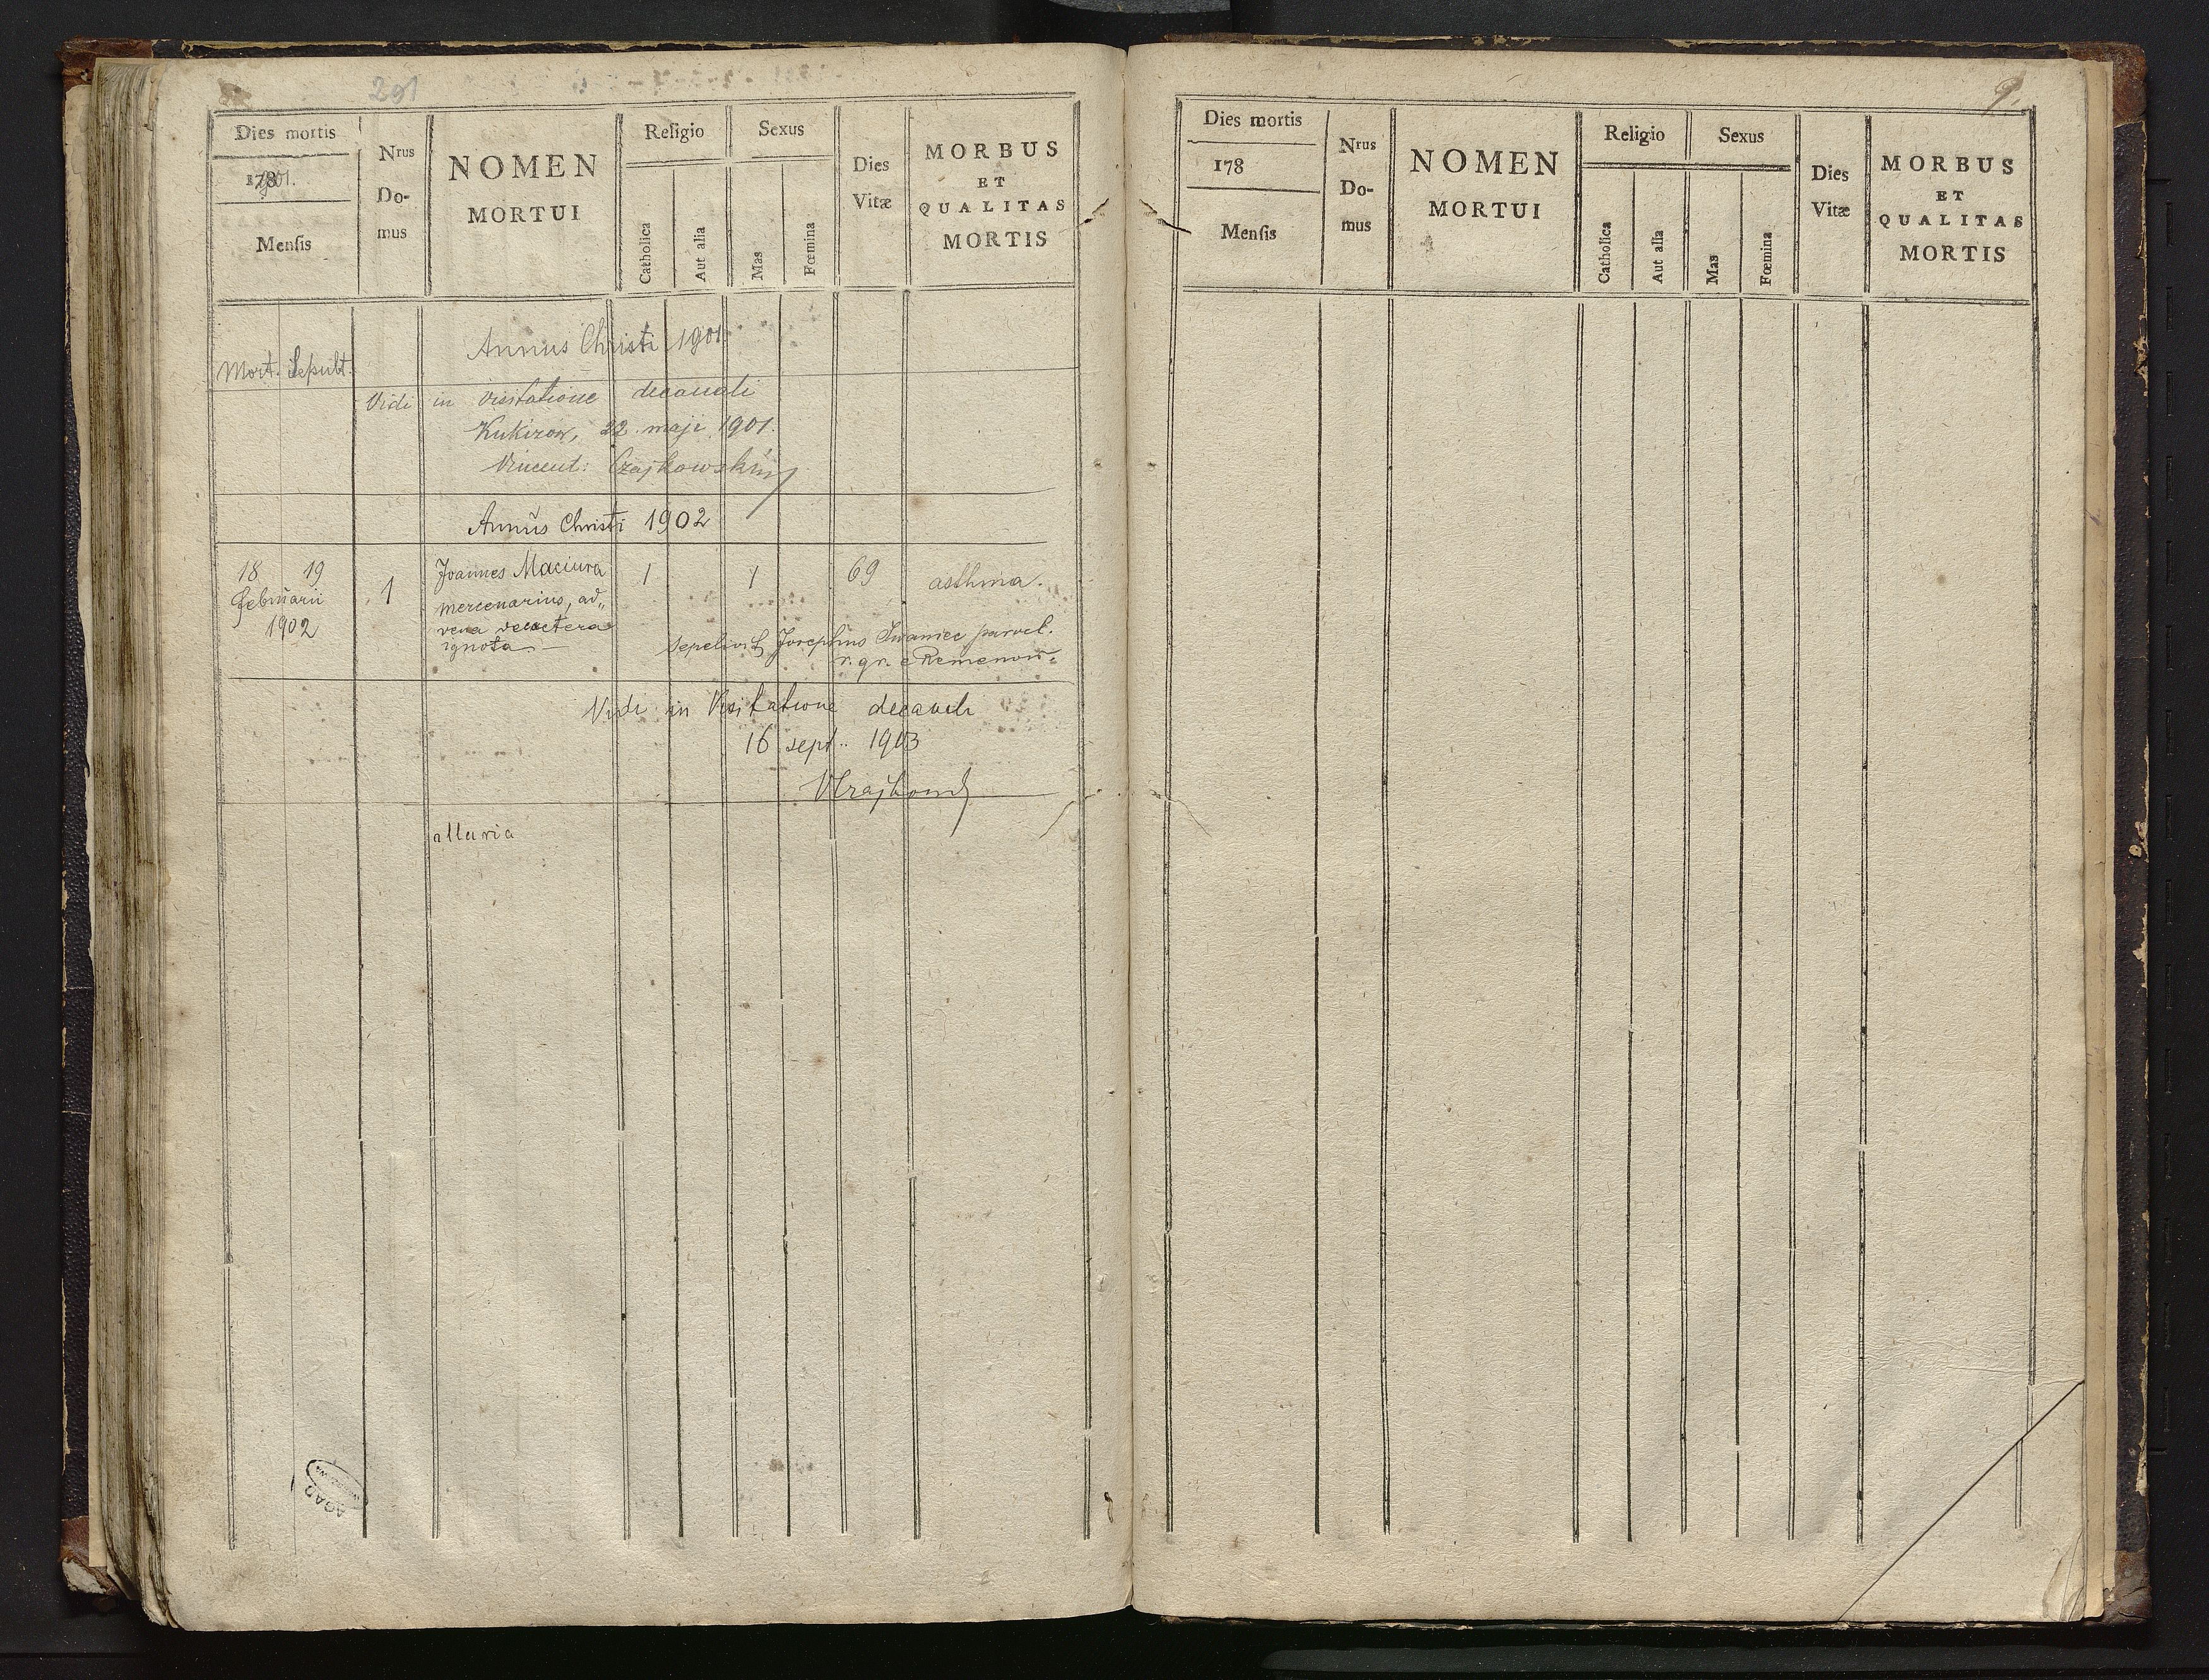 201
Dies mortis
1901.
Menſis
Nrus
Do-
mus
NOMEN
MORTUI
Religio
Catholica
Aut alia
Sexus
Mas
Fœmina
Dies
Vitæ
MORBUS
ET
QUALITAS
MORTIS
Annus Christi 1901
Mort. Sepult.
Vidi in visitatione decanali
Kukizow, 22 maji 1901.
Vincent: Czajkowski
Annus Christi 1902
18 19
februarii
1902
1
Joannes Maciura
mercenarius, ad„
vena de cetera
ignota —
1
1
69
asthma.
sepelivit Josephus Iwaniec paroch.
r. gr. e Remenow.
Vidi in Visitatione decanali
16 sept. 1903
VCzajkowski
Maria
AGAD
9.
Dies mortis
178
Menſis
Nrus
Do-
mus
NOMEN
MORTUI
Religio
Catholica
Aut alia
Sexus
Mas
Fœmina
Dies
Vitæ
MORBUS
ET
QUALITAS
MORTIS